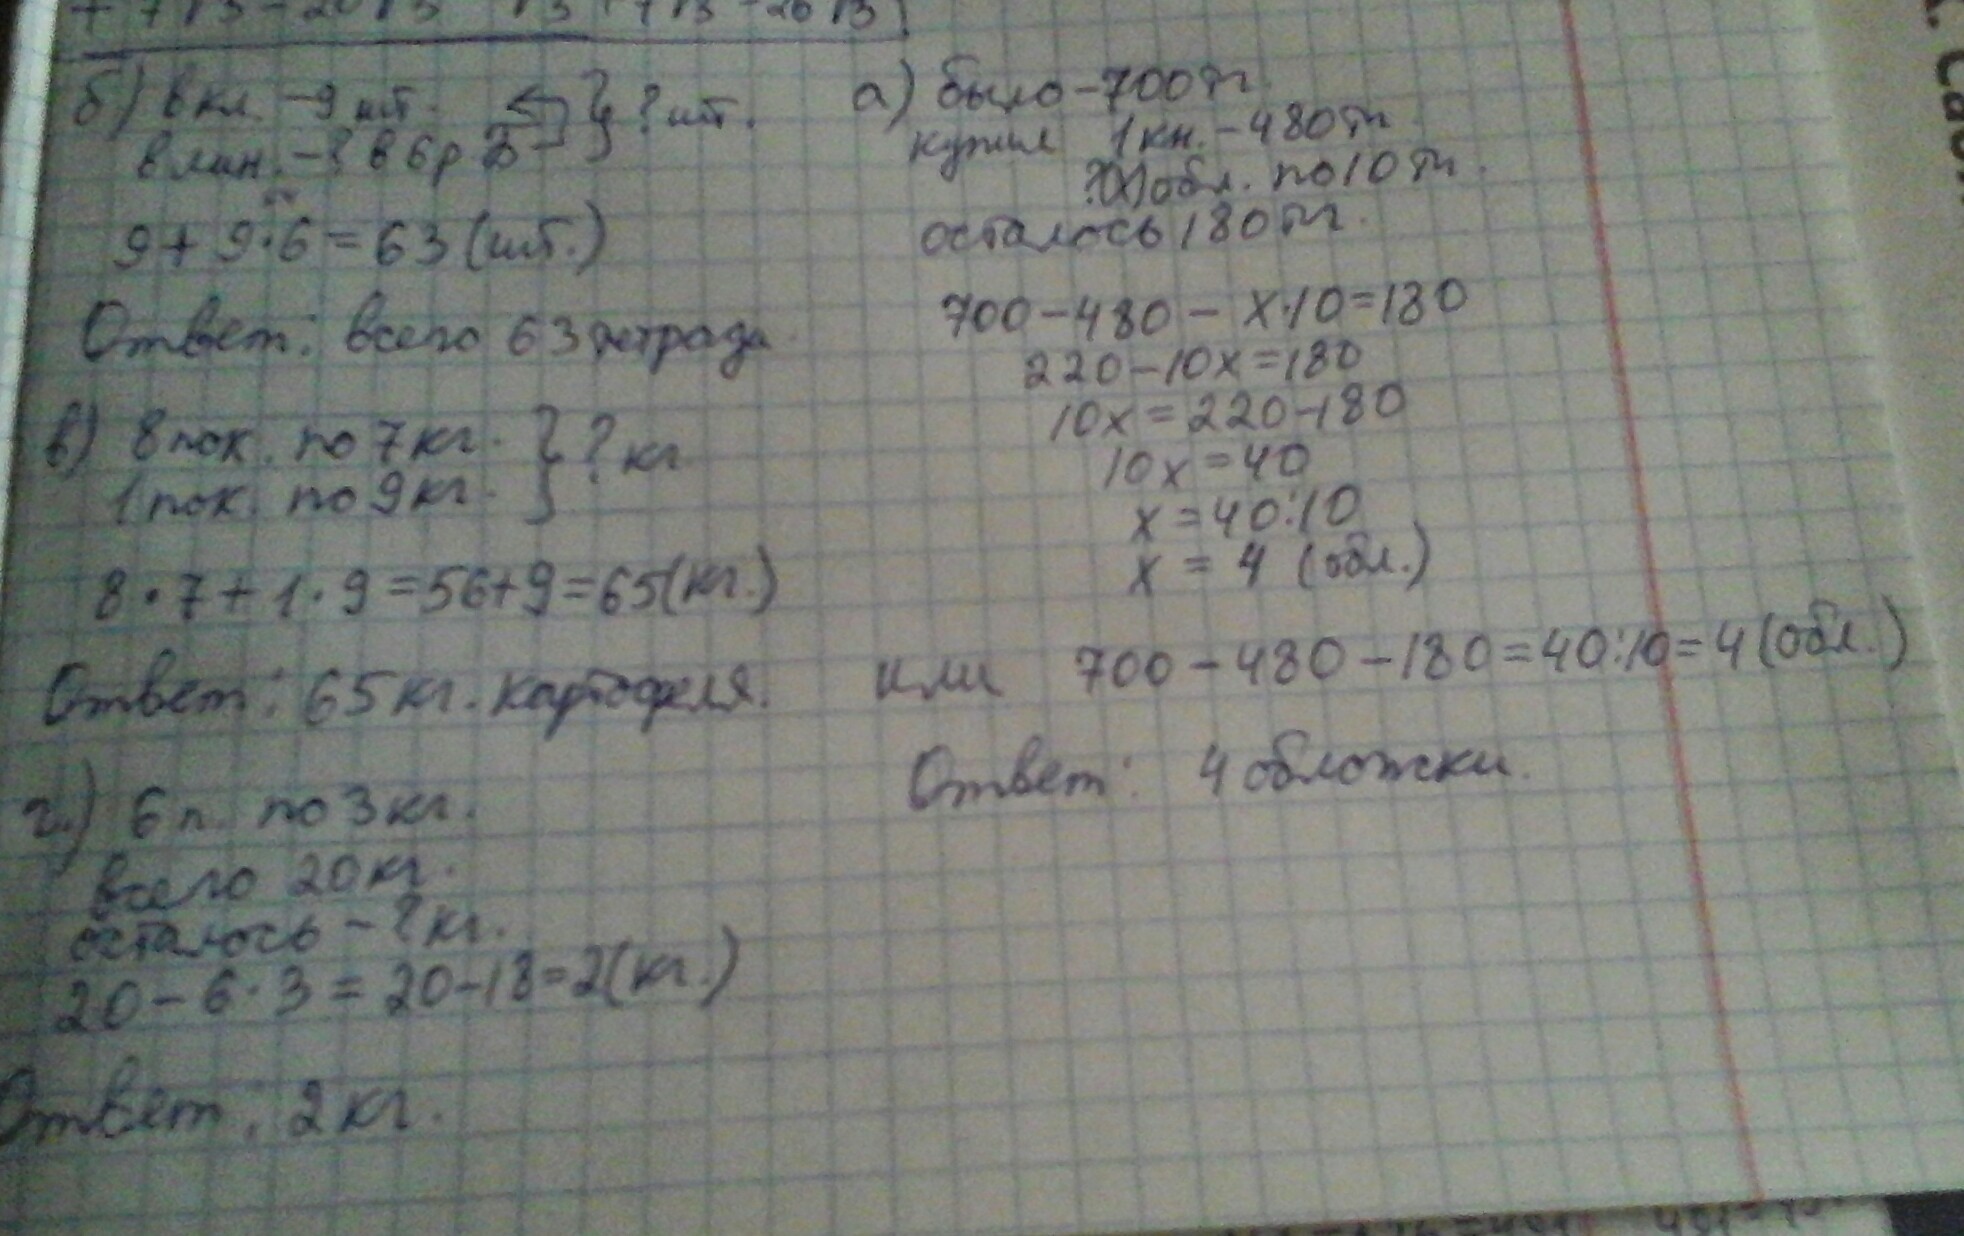 б) в кл. – 9 шт. } ? шт.
в лин. – ? в 6 р б
9 + 9·6 = 63 (шт.)
Ответ: всего 63 тетради
в) 8 пак. по 7 кг. } ? кг
1 пак. по 9 кг.
8·7 + 1·9 = 56+9 = 65 (кг.)
Ответ: 65 кг. картофеля.
г.) 6 п. по 3 кг.
всего 20 кг.
осталось – ? кг.
20 – 6·3 = 20–18 = 2 (кг.)
Ответ: 2 кг.
а) было – 700 тг.
купил 1 кн. – 480 тг.
?(х) обл. по 10 тг.
осталось 180 тг.
700 – 480 – х·10 = 180
220 – 10х = 180
10х = 220–180
10х = 40
х = 40:10
х = 4 (обл.)
или 700 – 480 – 180 = 40:10 = 4 (обл.)
Ответ: 4 обложки.